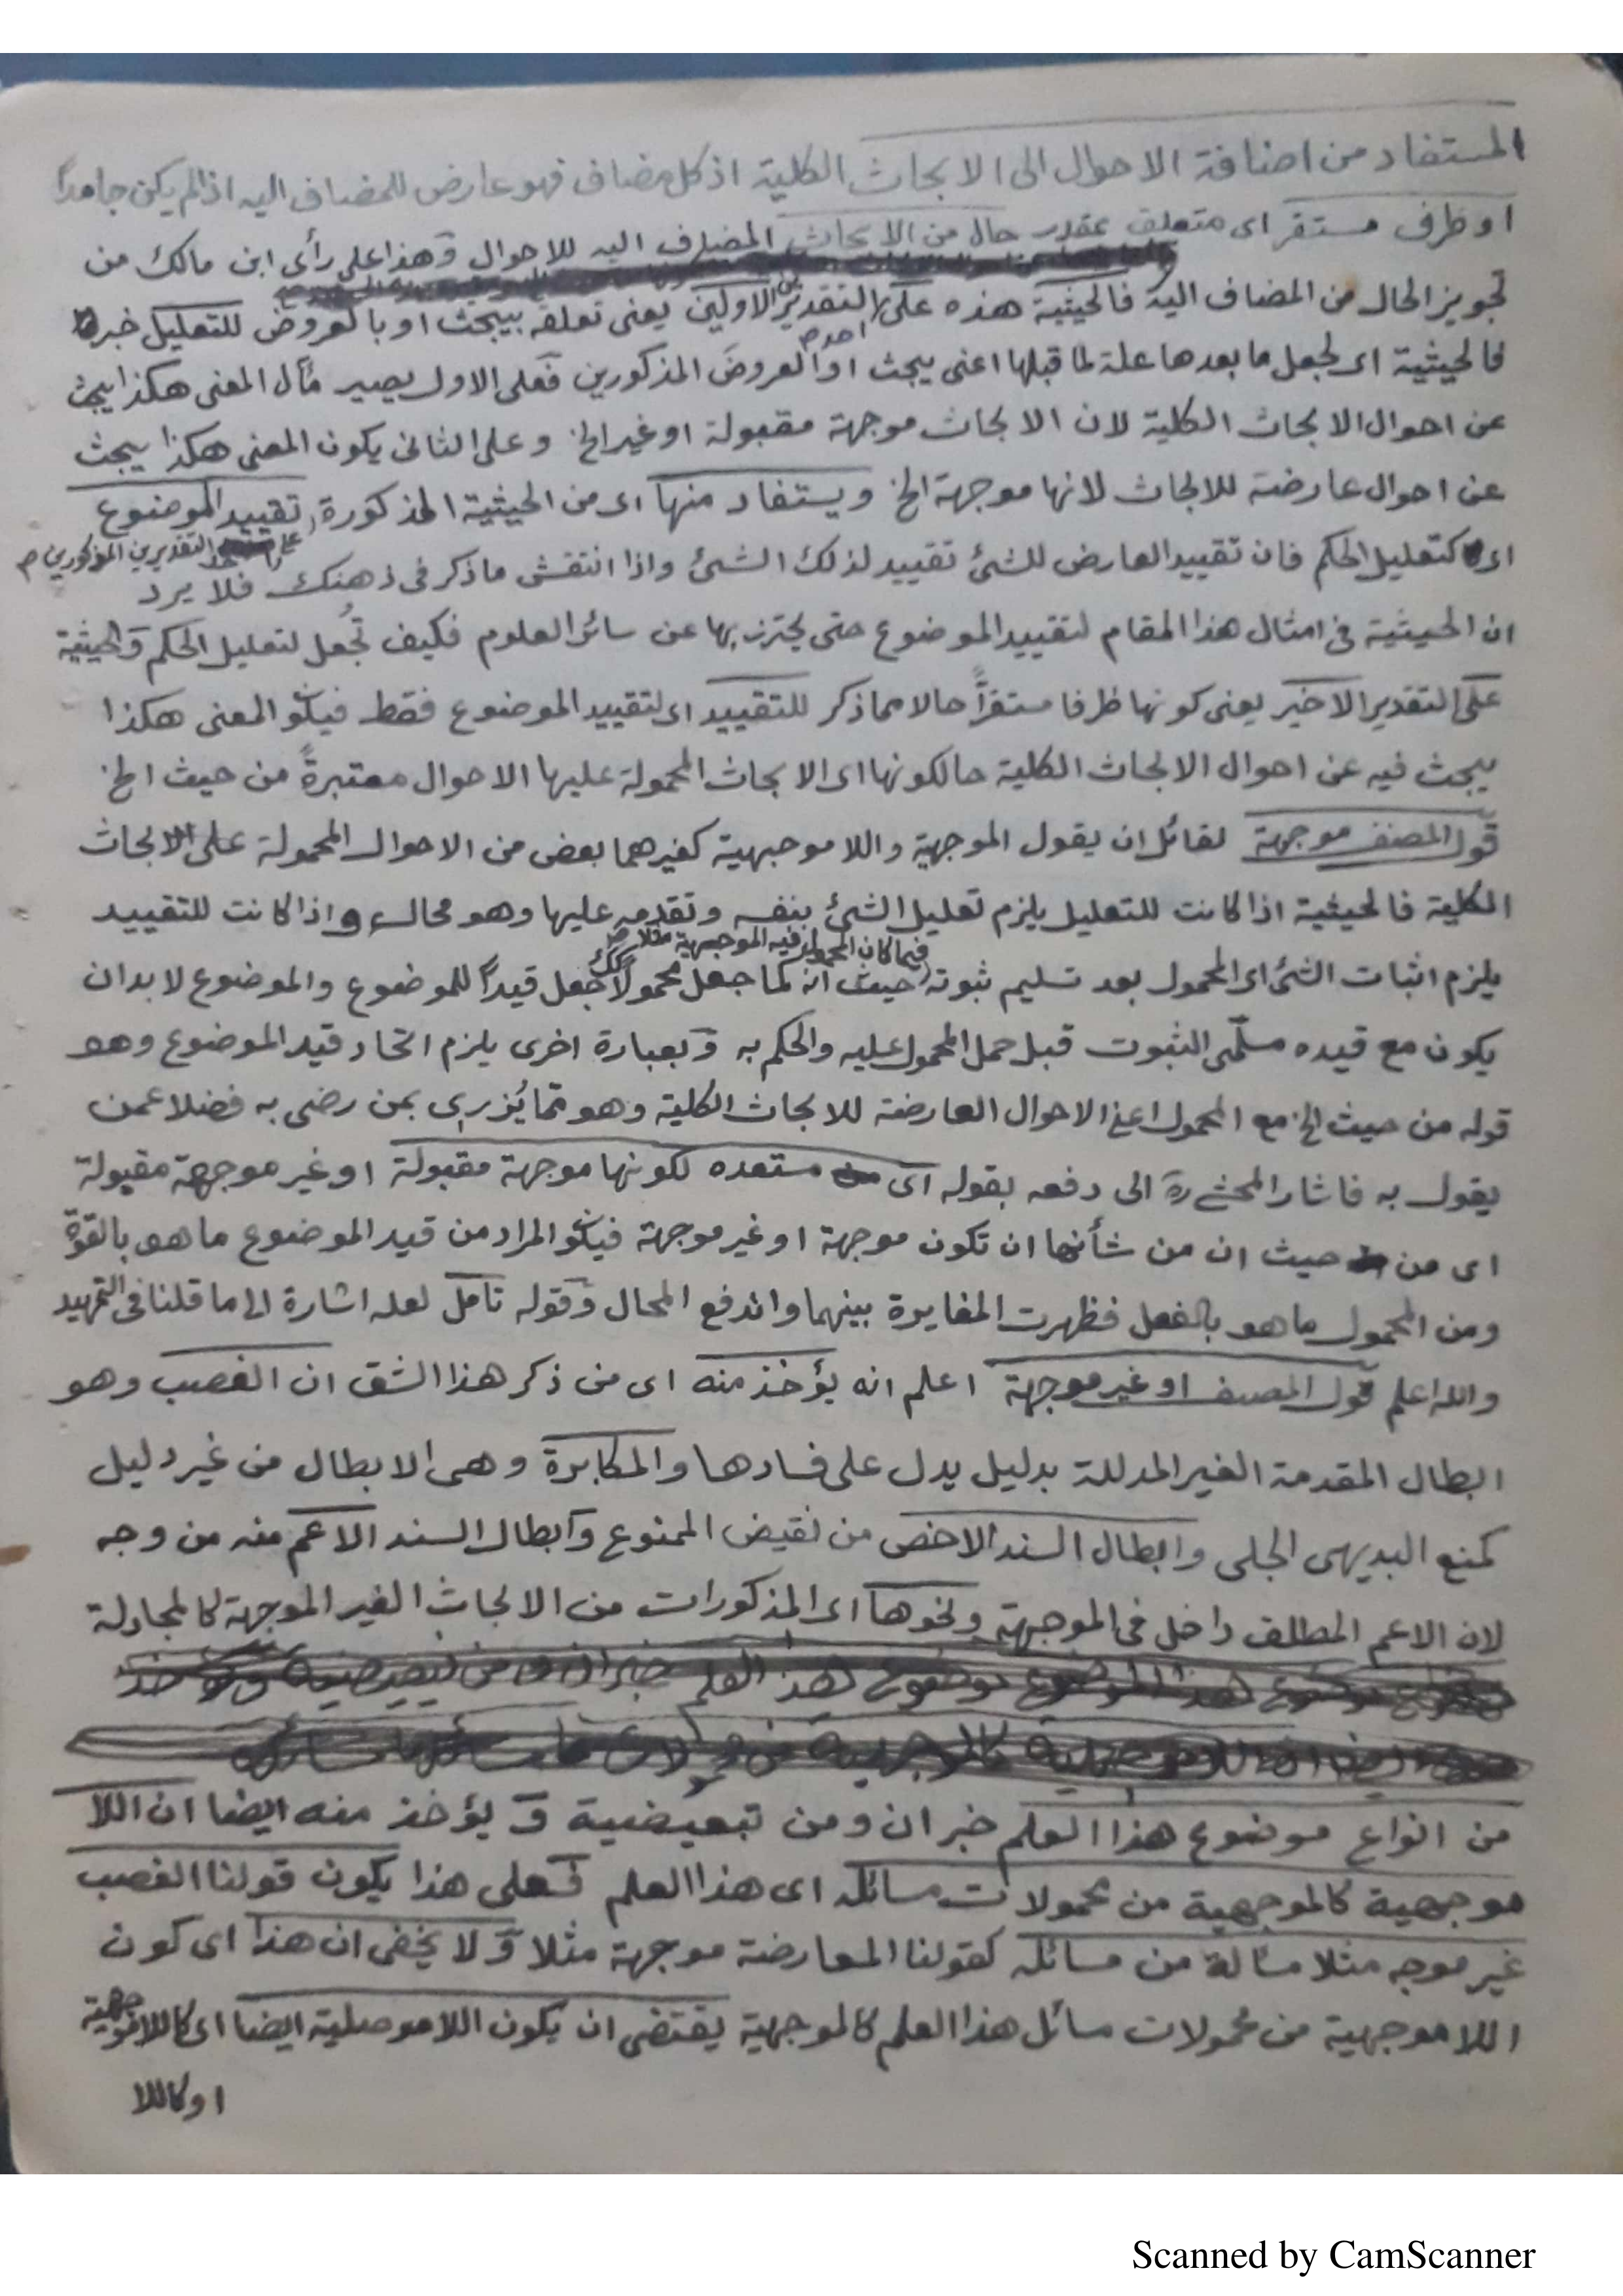 المستفاد من اضافة الاحوال الى الابحاث الكلية اذ كل مضاف فهو عارض للمضاف اليه اذا لم يكن جامداً
او ظرف مستقر اى متعلق بمقدر حال من الابحاث المضاف اليه للاحوال وهذا على رأى ابن مالك من
تجويز الحال من المضاف اليه فالحيثية هذه على التقديرين الاولين يعنى تعلقه بيبحث او بالعروض للتعليل خبر
احدهم
فالحيثية اى لجعل ما بعدها علة لما قبلها اعنى يبحث او العروضَ المذكورين فعلى الاول يصير مآل المعنى هكذا يبحث
عن احوال الابحاث الكلية لان الابحاث موجهة مقبولة او غير الخ وعلى الثانى يكون المعنى هكذا يبحث
عن احوال عارضة للابحاث لانها موجهة الخ ويستفاد منها اى من الحيثية المذكورة تقييد الموضوع
على التقديرين المذكورين
اى كتعليل الحكم فان تقييد العارض للشئ تقييد لذلك الشئ واذا انتقش ما ذكر فى ذهنك فلا يرد
ان الحيثية فى امثال هذا المقام لتقييد الموضوع حتى يحترز بها عن سائر العلوم فكيف تُجعل لتعليل الحكم والحيثية
على التقدير الاخير يعنى كونها ظرفا مستقراً حالا مما ذكر للتقييد اى لتقييد الموضوع فقط فيكو المعنى هكذا
يبحث فيه عن احوال الابحاث الكلية حالكونها اى الابحاث المحمولة عليها الاحوال معتبرةً من حيث الخ
قول المصنف موجهة لقائل ان يقول الموجهية واللا موجهية كغيرهما بعض من الاحوال المحمولة على الابحاث
الكلية فالحيثية اذا كانت للتعليل يلزم تعليل الشئ بنفسه وتقدمه عليها وهو محال واذا كانت للتقييد
فيما كان المحمول فيه الموجهية مثلا
يلزم اثبات الشئ اى المحمول بعد تسليم ثبوته حيث انه كما جعل محمولاً كك جعل قيداً للموضوع والموضوع لابد ان
يكون مع قيده مسلّمى الثبوت قبل حمل المحمول عليه والحكم به وبعبارة اخرى يلزم اتحاد قيد الموضوع وهو
قوله من حيث الخ مع المحمول اعنى الاحوال العارضة للابحاث الكلية وهو مما يُزرى بمن رضى به فضلا عمن
يقول به فاشار المحشى ره الى دفعه بقوله اى مستعده لكونها موجهة مقبولة او غير موجهة مقبولة
اى من حيث ان من شأنها ان تكون موجهة او غير موجهة فيكو المراد من قيد الموضوع ما هو بالقوّة
ومن المحمول ما هو بالفعل فظهرت المغايرة بينهما واندفع المحال وقوله تأمل لعله اشارة الى ما قلنا فى التمهيد
والله اعلم قول المصنف او غير موجهة اعلم انه يؤخذ منه اى من ذكر هذا الشق ان الغصب وهو
ابطال المقدمة الغير المدللة بدليل يدل على فسادها والمكابرة وهى الابطال من غير دليل
كمنع البديهى الجلى وابطال السند الاخص من نقيض الممنوع وابطال السند الاعم منه من وجه
لان الاعم المطلق داخل فى الموجهة ونحوها اى المذكورات من الابحاث الغير الموجهة كالمجادلة
من انواع موضوع هذا العلم خبر ان ومن تبعيضية و يؤخذ منه ايضا ان اللا
موجهية كالموجهية من محمولات مسائله اى هذا العلم فعلى هذا يكون قولنا الغصب
غير موجه مثلا مسألة من مسائله كقولنا المعارضة موجهة مثلا ولا يخفى ان هذا اى كون
اللا موجهية من محمولات مسائل هذا العلم كالموجهية يقتضى ان يكون اللا موصلية ايضا اى كاللاموجهية
او كاللا
Scanned by CamScanner